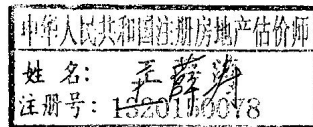 中华人民共和国注册房地产估价师
姓名：
注册号：1320150078